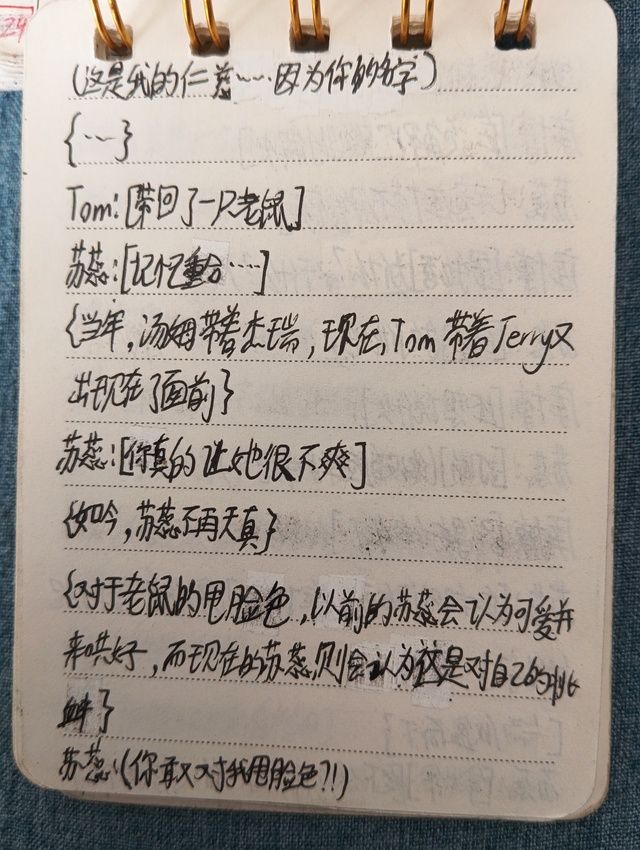 24
(这是我的仁慈……因为你的名字)
{……}
Tom:[带回了一只老鼠]
苏蕊:[记忆重合……]
{当年,汤姆带着杰瑞,现在,Tom带着Jerry又
出现在了面前}
苏蕊:[你真的让她很不爽]
{如今,苏蕊不再天真}
{对于老鼠的甩脸色,以前的苏蕊会认为可爱并
来哄好,而现在的苏蕊则会认为这是对自己的挑
衅}
苏蕊:(你敢对我甩脸色?!)